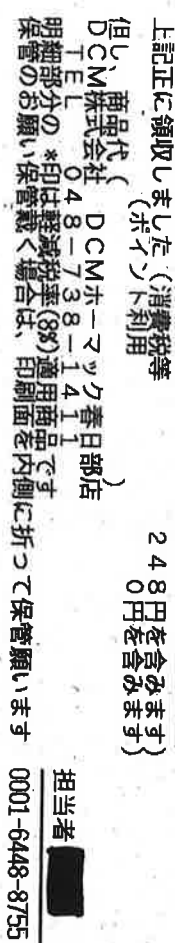 上記正に領収しました(消費税等 248円を含みます)
(ポイント利用 0円を含みます)
但し、商品代( )
DCM株式会社 DCMホーマック春日部店
TEL 048-738-1411
明細部分の*印は軽減税率(8%)適用商品です
保管のお願い保管戴く場合は、印刷面を内側に折って保管願います
担当者
0001-6448-8755